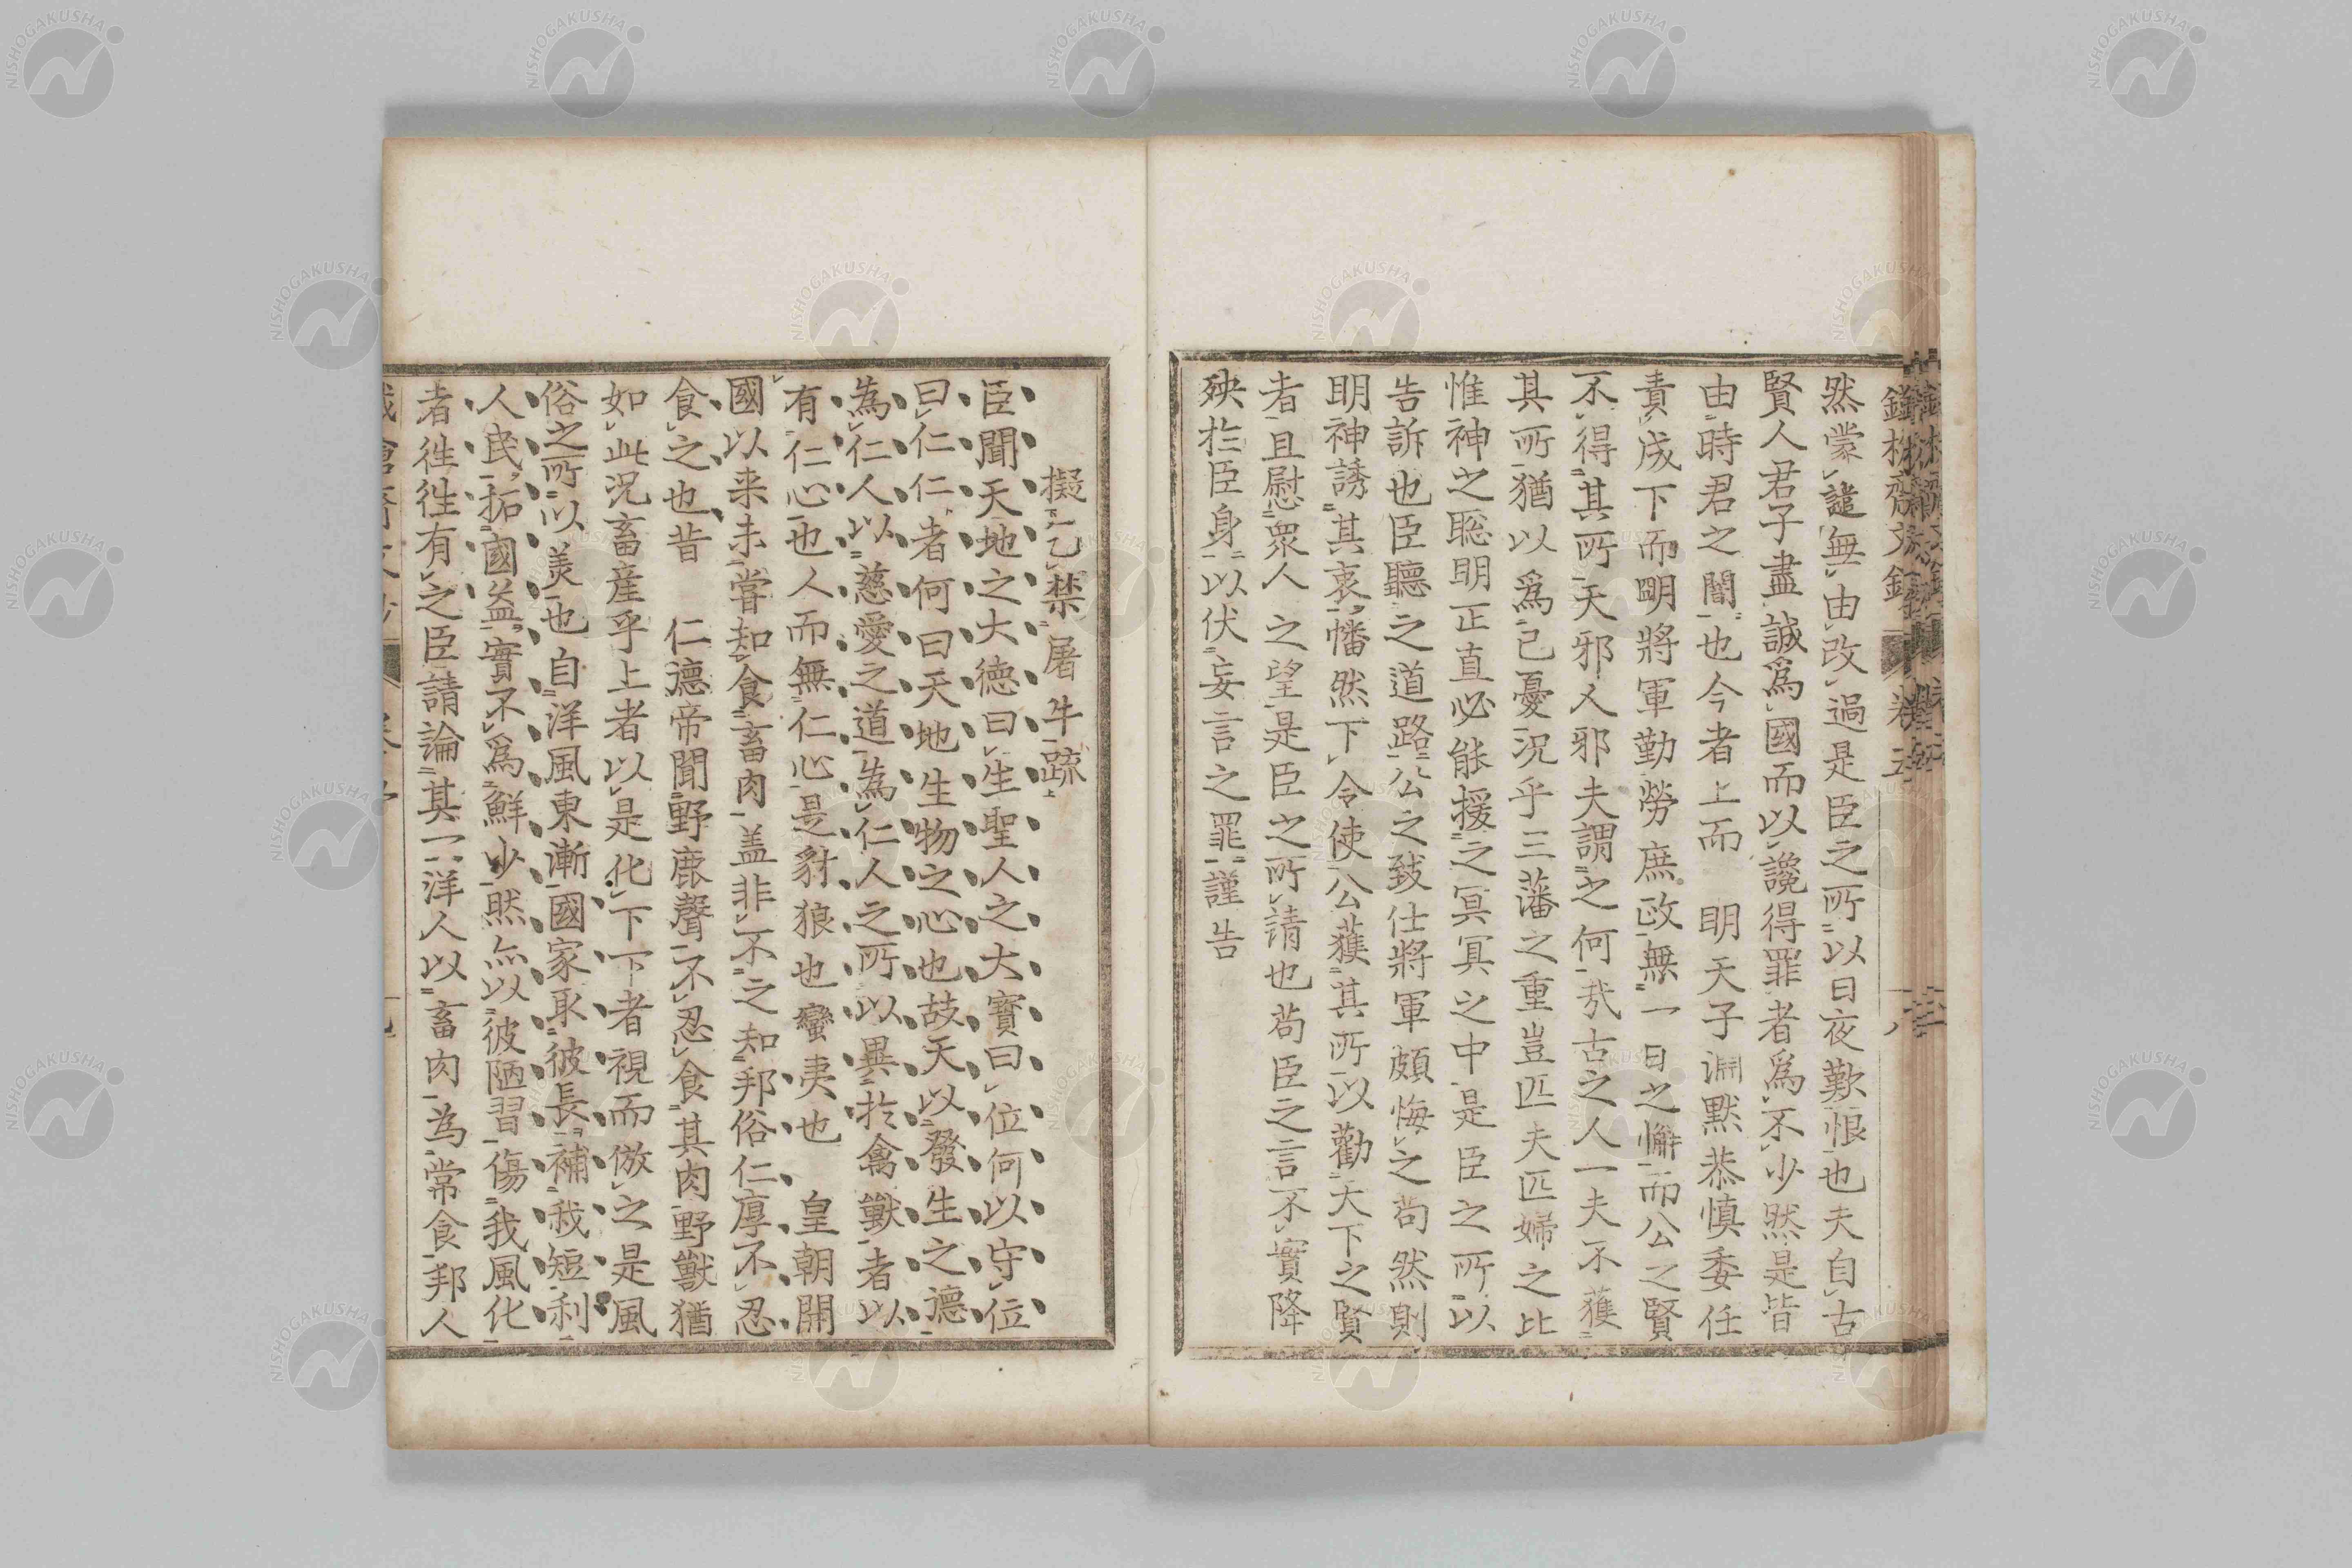 然蒙譴無由改過是臣之所以日夜歎恨也夫自古
賢人君子盡誠爲國而以讒得罪者爲不少然是皆
由時君之闇也今者上而 明天子淵默恭愼委任
責成下而明將軍勤勞庶政無一日之懈而公之賢
不得其所天邪人邪夫謂之何哉古之人一夫不獲
其所猶以爲己憂況乎三藩之重豈匹夫匹婦之比
惟神之聡明正直必能援之冥冥之中是臣之所以
告訴也臣聽之道路公之致仕將軍頗悔之苟然則
明神誘其衷幡然下令使公獲其所以勸天下之賢
者且慰衆人之望是臣之所請也苟臣之言不實降
殃於臣身以伏妄言之罪謹告
擬乞禁屠牛疏
臣聞天地之大德曰生聖人之大寶曰位何以守位
曰仁仁者何曰天地生物之心也故天以發生之德
為仁人以慈愛之道為仁人之所以異於禽獸者以
有仁心也人而無仁心是豺狼也蠻夷也 皇朝開
國以来未嘗知食畜肉盖非不之知邦俗仁厚不忍
食之也昔 仁德帝聞野鹿聲不忍食其肉野獸猶
如此況畜産乎上者以是化下下者視而倣之是風
俗之所以美也自洋風東漸國家取彼長補我短利
人民拓國益實不爲鮮少然亦以彼陋習傷我風化
者徃徃有之臣請論其一洋人以畜肉為常食邦人